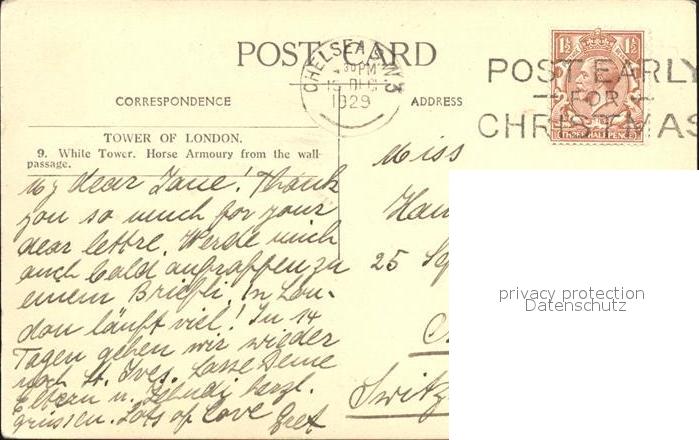 POST CARD
CHELSEA S.W.3
30 PM
15 DEC
1929
POST EARLY
FOR
CHRISTMAS
1½ 1½
THREE HALFPENCE
CORRESPONDENCE
ADDRESS
TOWER OF LONDON.
9. White Tower. Horse Armoury from the wall-
passage.
My dear Jane! Thank
you so much for your
dear lettre. Werde mich
auch bald aufraffen zu
einem Briefli. In Lon-
don läuft viel! In 14
Tagen gehen wir wieder
nach St. Ives. Lasse Deine
Eltern u. herzl.
grüssen. Lots of love Gret
Miss
Hau
25 Sq
Switz
privacy protection
Datenschutz